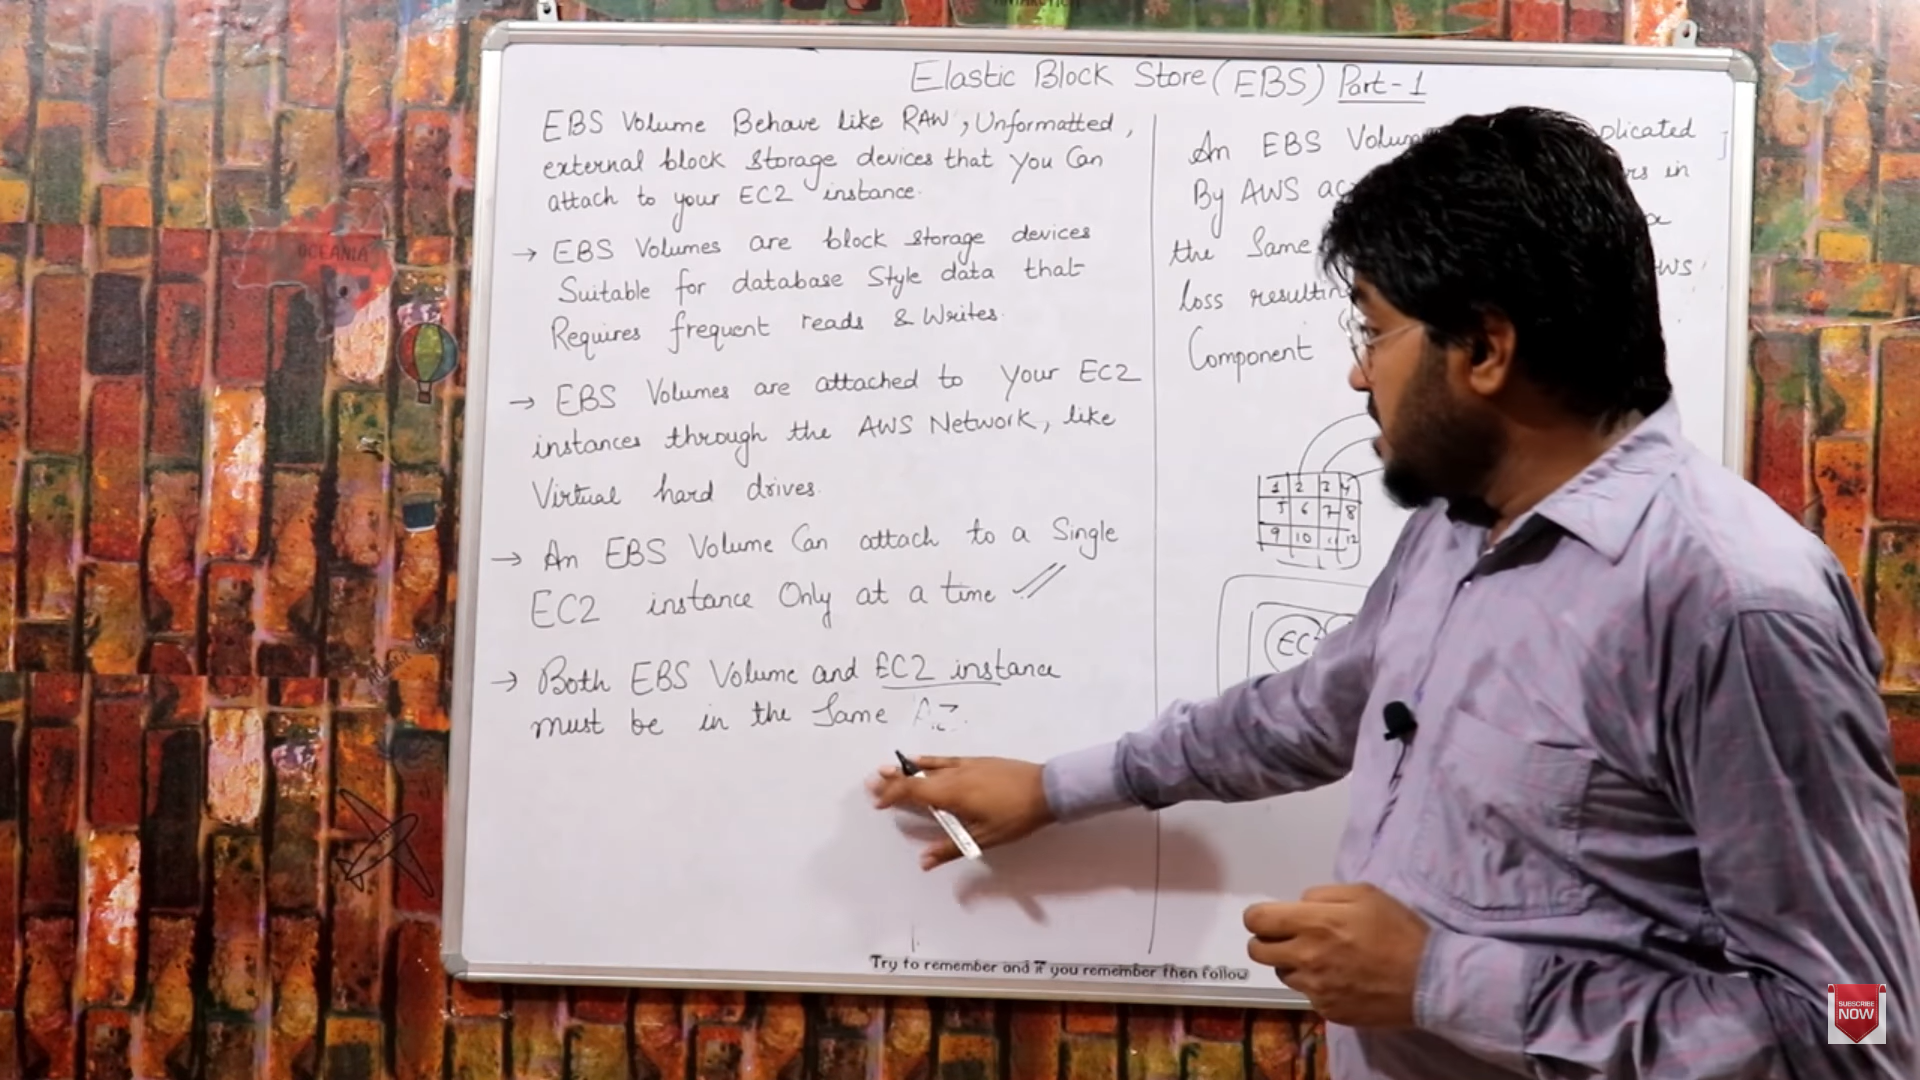 Elastic Block Store (EBS) Part-1
EBS Volume Behave like RAW, Unformatted,
external block storage devices that you Can
attach to your EC2 instance.
→ EBS Volumes are block storage devices
Suitable for database Style data that
Requires frequent reads & Writes.
→ EBS Volumes are attached to your EC2
instances through the AWS Network, like
Virtual hard drives.
→ An EBS Volume Can attach to a Single
EC2 instance Only at a time
→ Both EBS Volume and EC2 instance
must be in the Same AZ.
An EBS
By AWS
the Same
loss
Component
in
1 2 3 4
5 6 7 8
9 10 11 12
EC2
Try to remember and if you remember then follow
OCEANIA
SUBSCRIBE
NOW